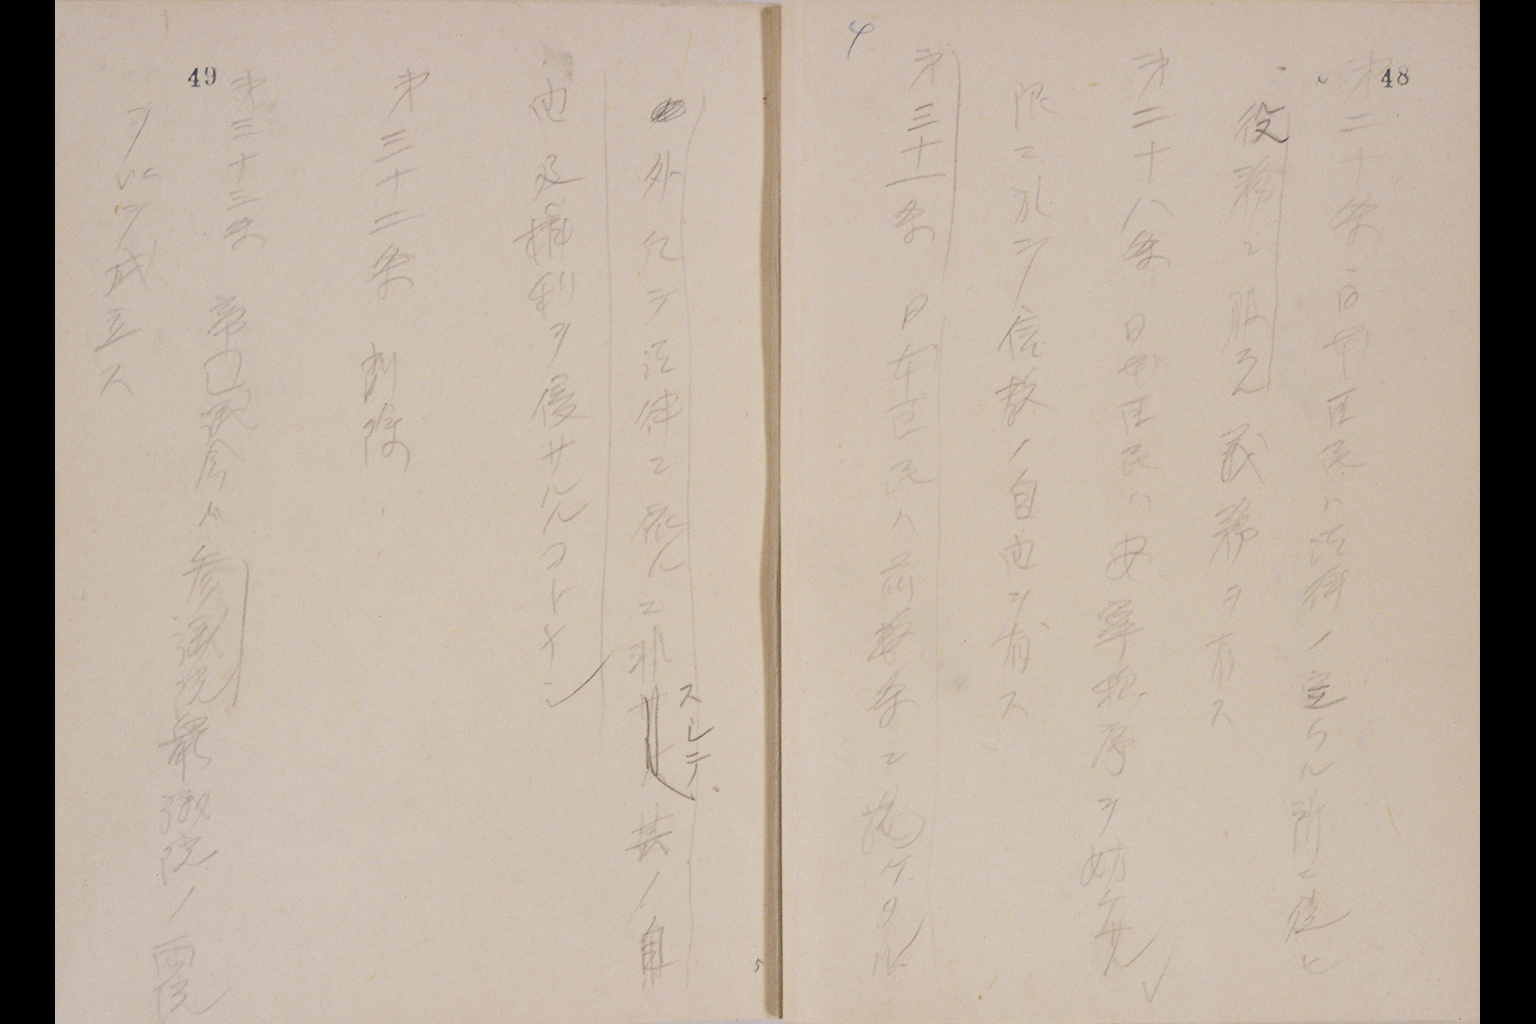 48
第二十条 日本臣民ハ法律ノ定ムル所ニ従ヒ
役務ニ服スル義務ヲ有ス
第二十八条 日本臣民ハ安寧秩序ヲ妨ケサル
限ニ於テ信教ノ自由ヲ有ス
第三十一条 日本臣民ハ前数条ニ掲ケタル
外凡テ法律ニ依ルニ非スレテ其ノ自
由及権利ヲ侵サルルコトナシ
第三十二条 削除
第三十三条 帝囗議会ハ参議院衆議院ノ両院
ヲ以ツテ成立ス
49